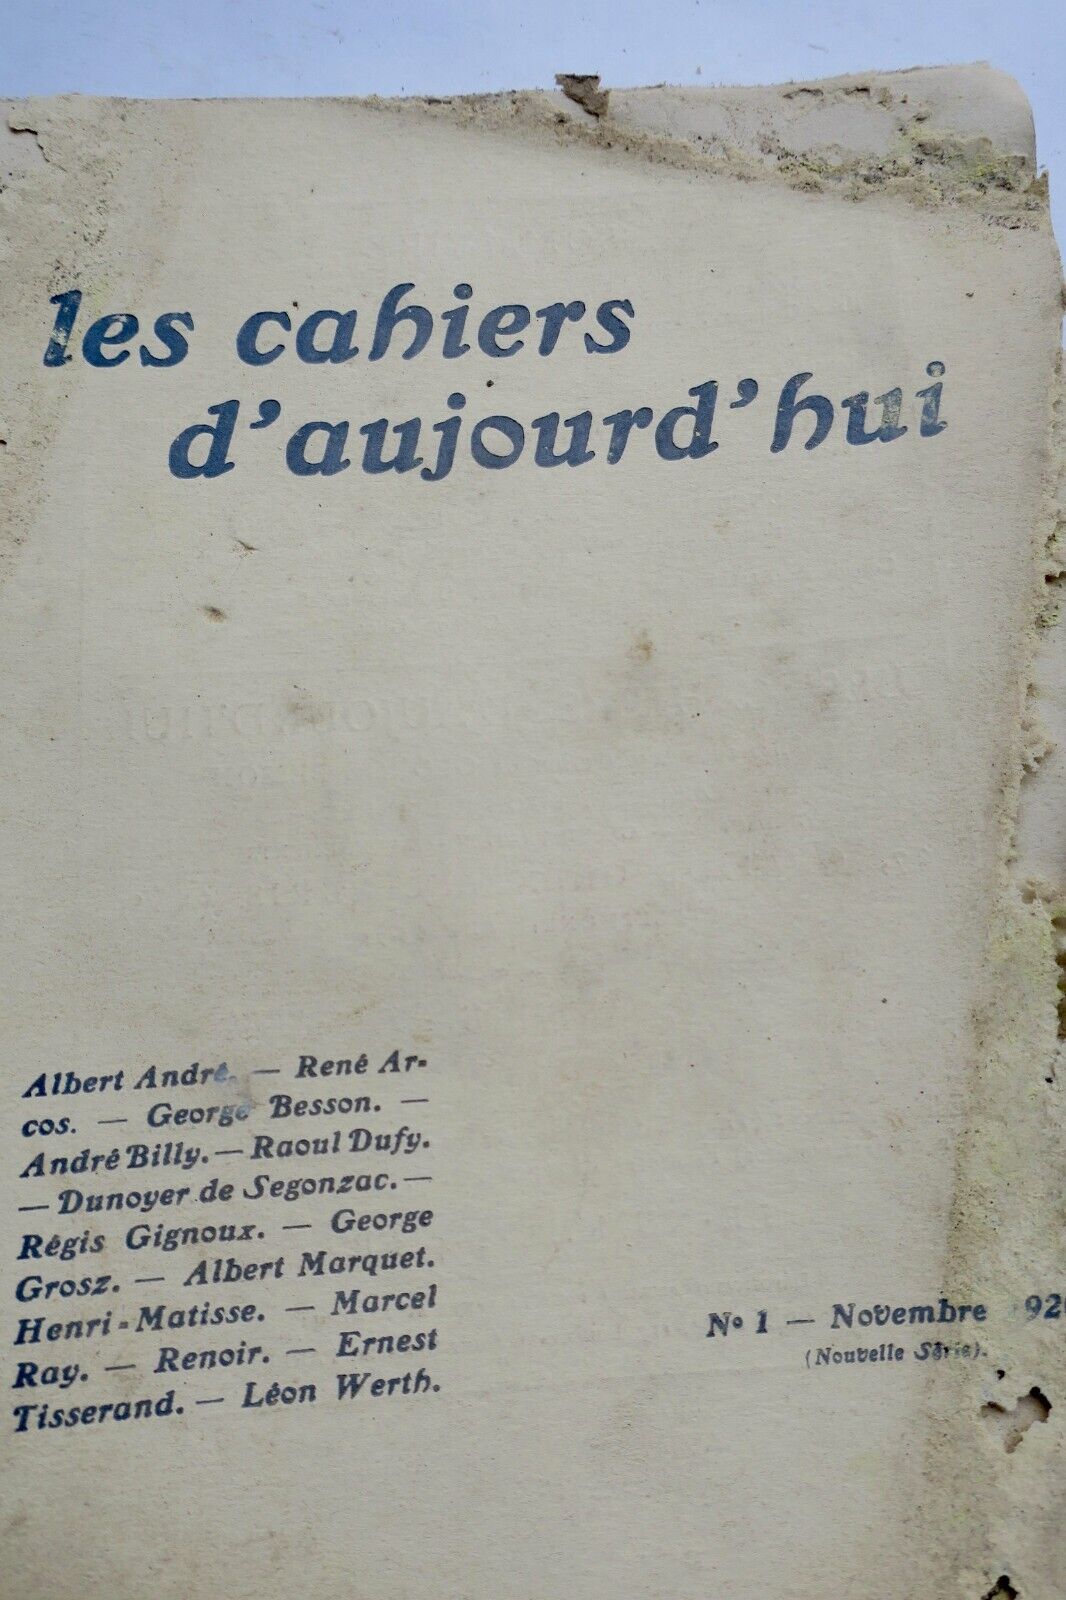 les cahiers
d'aujourd'hui
Albert André. — René Ar-
cos. — George Besson. —
André Billy. — Raoul Dufy.
— Dunoyer de Segonzac. —
Régis Gignoux. — George
Grosz. — Albert Marquet.
Henri-Matisse. — Marcel
Ray. — Renoir. — Ernest
Tisserand. — Léon Werth.
No 1 — Novembre 920
(Nouvelle Série).